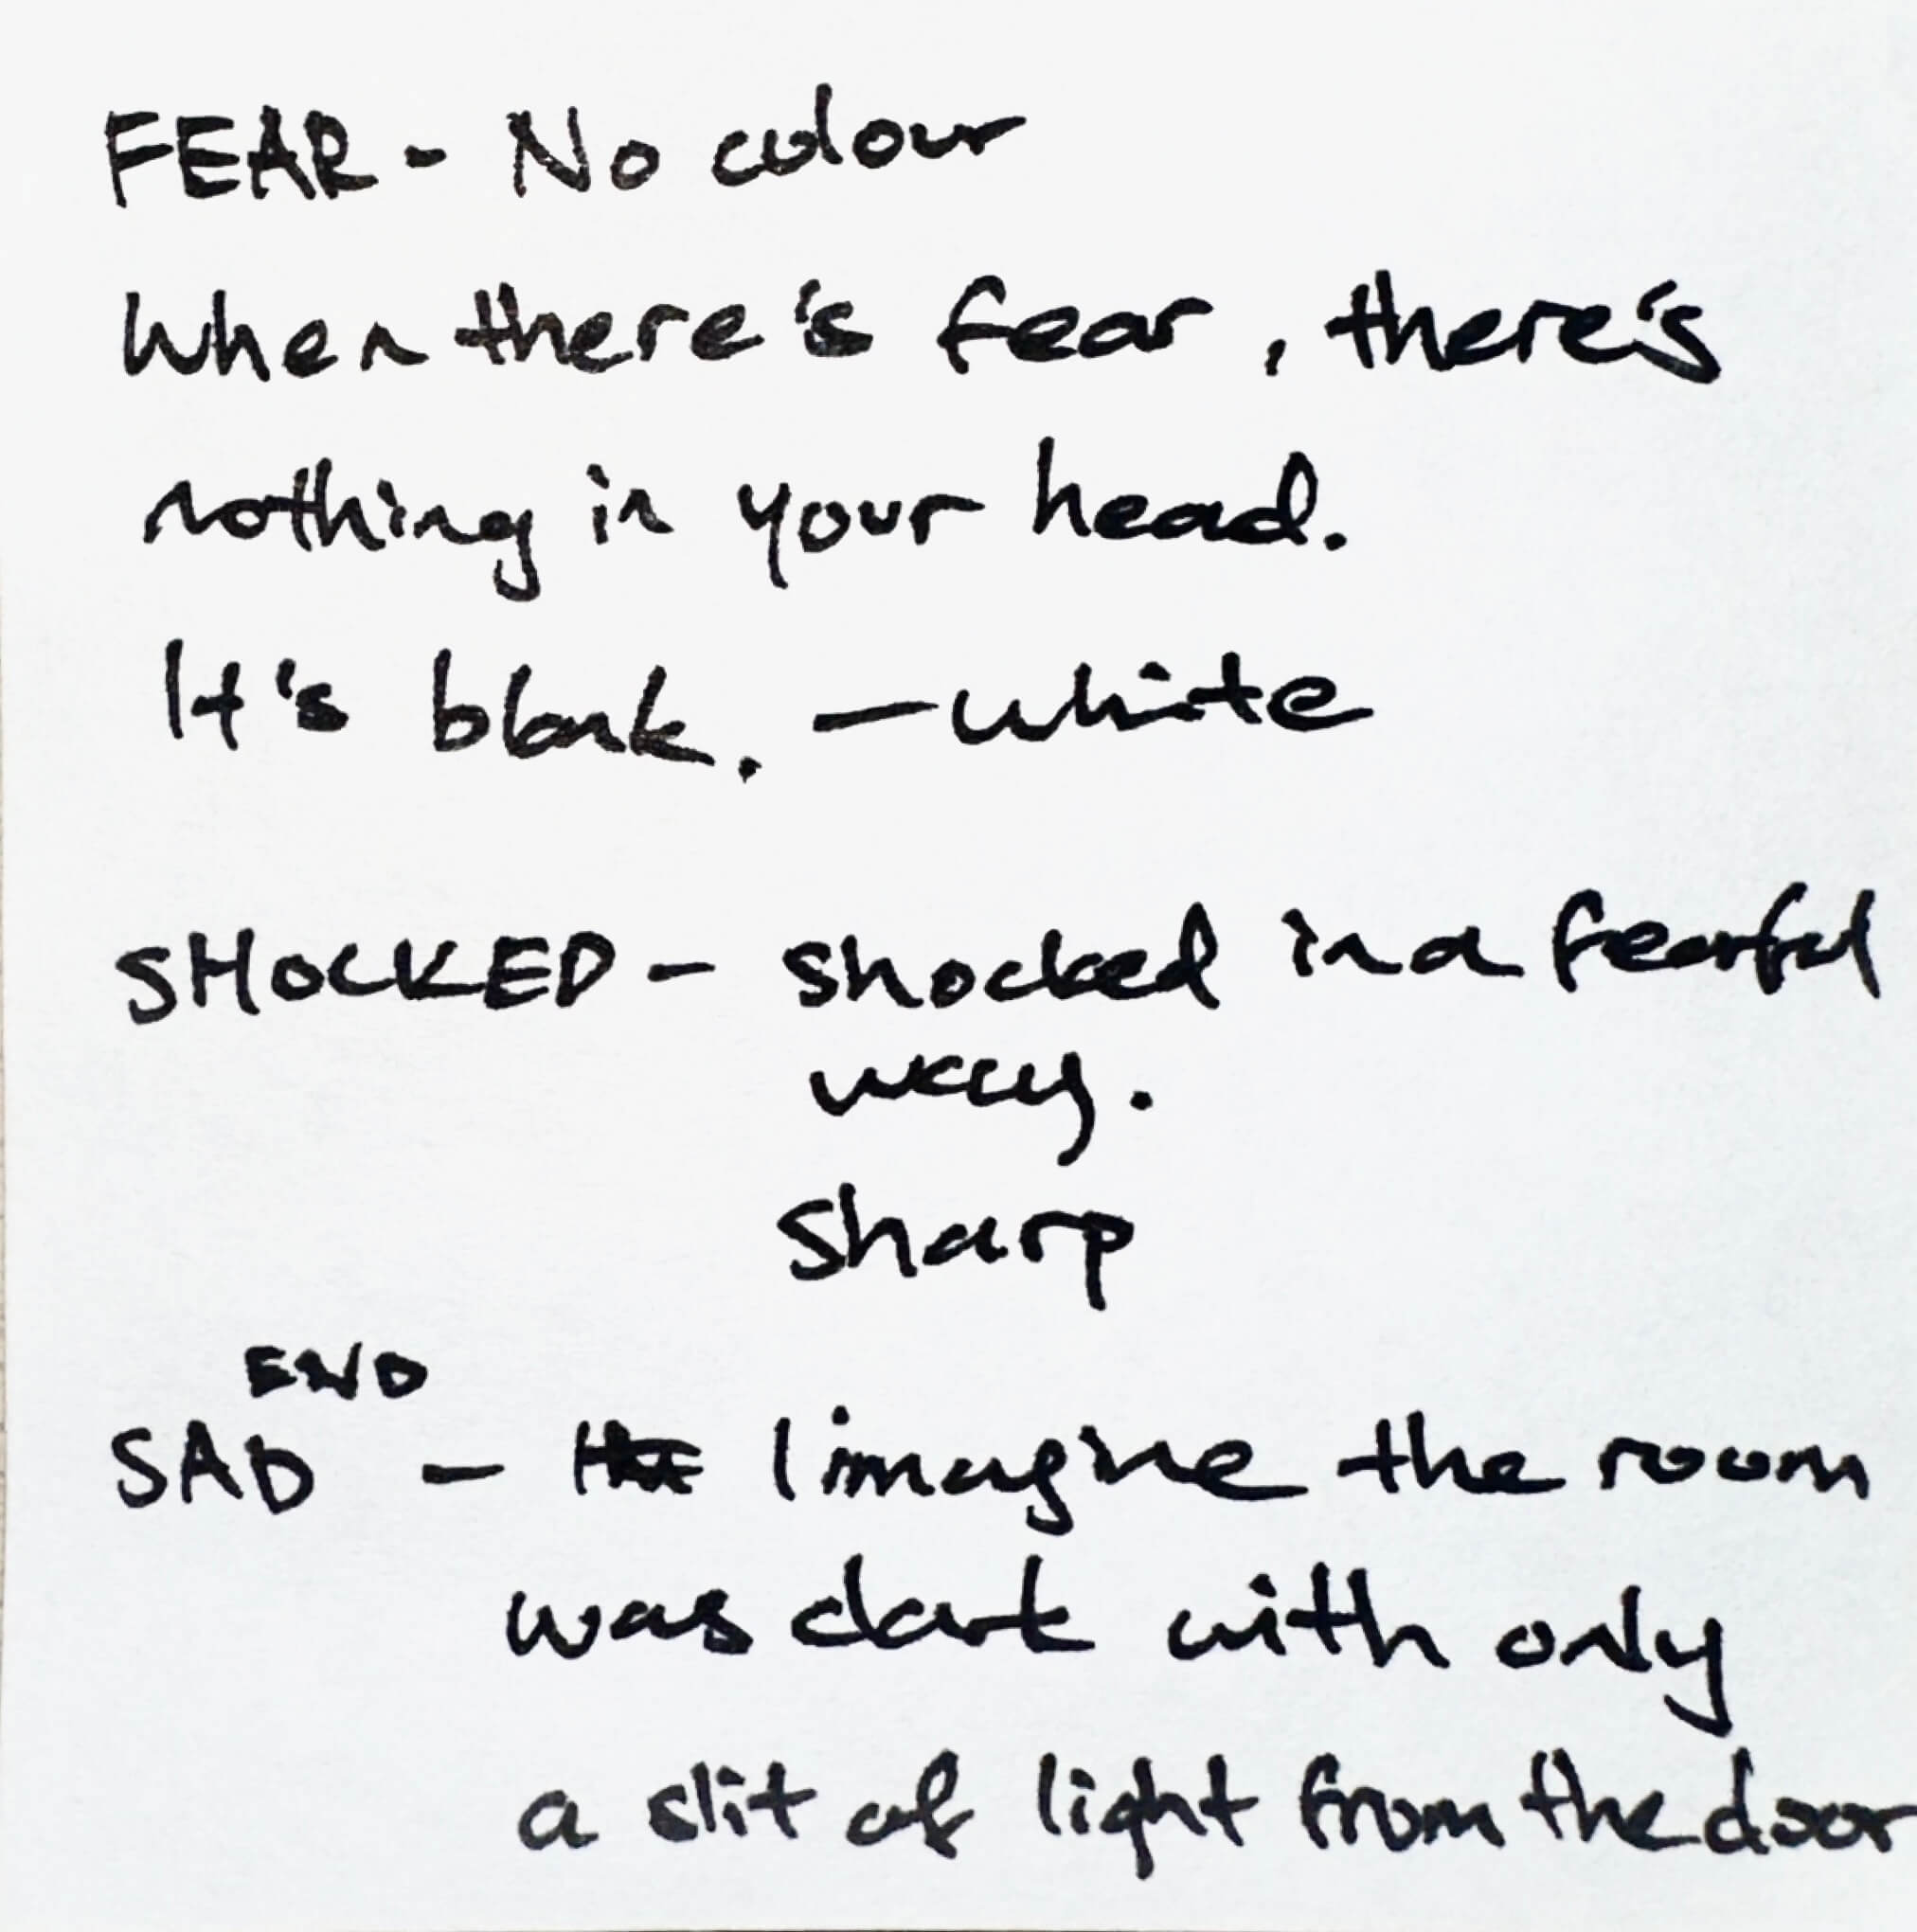 FEAR - No colour
When there's fear, there's
nothing in your head.
It's blank. - white
SHOCKED - shocked in a fearful
way.
sharp
END
SAD - I imagine the room
was dark with only
a slit of light from the door